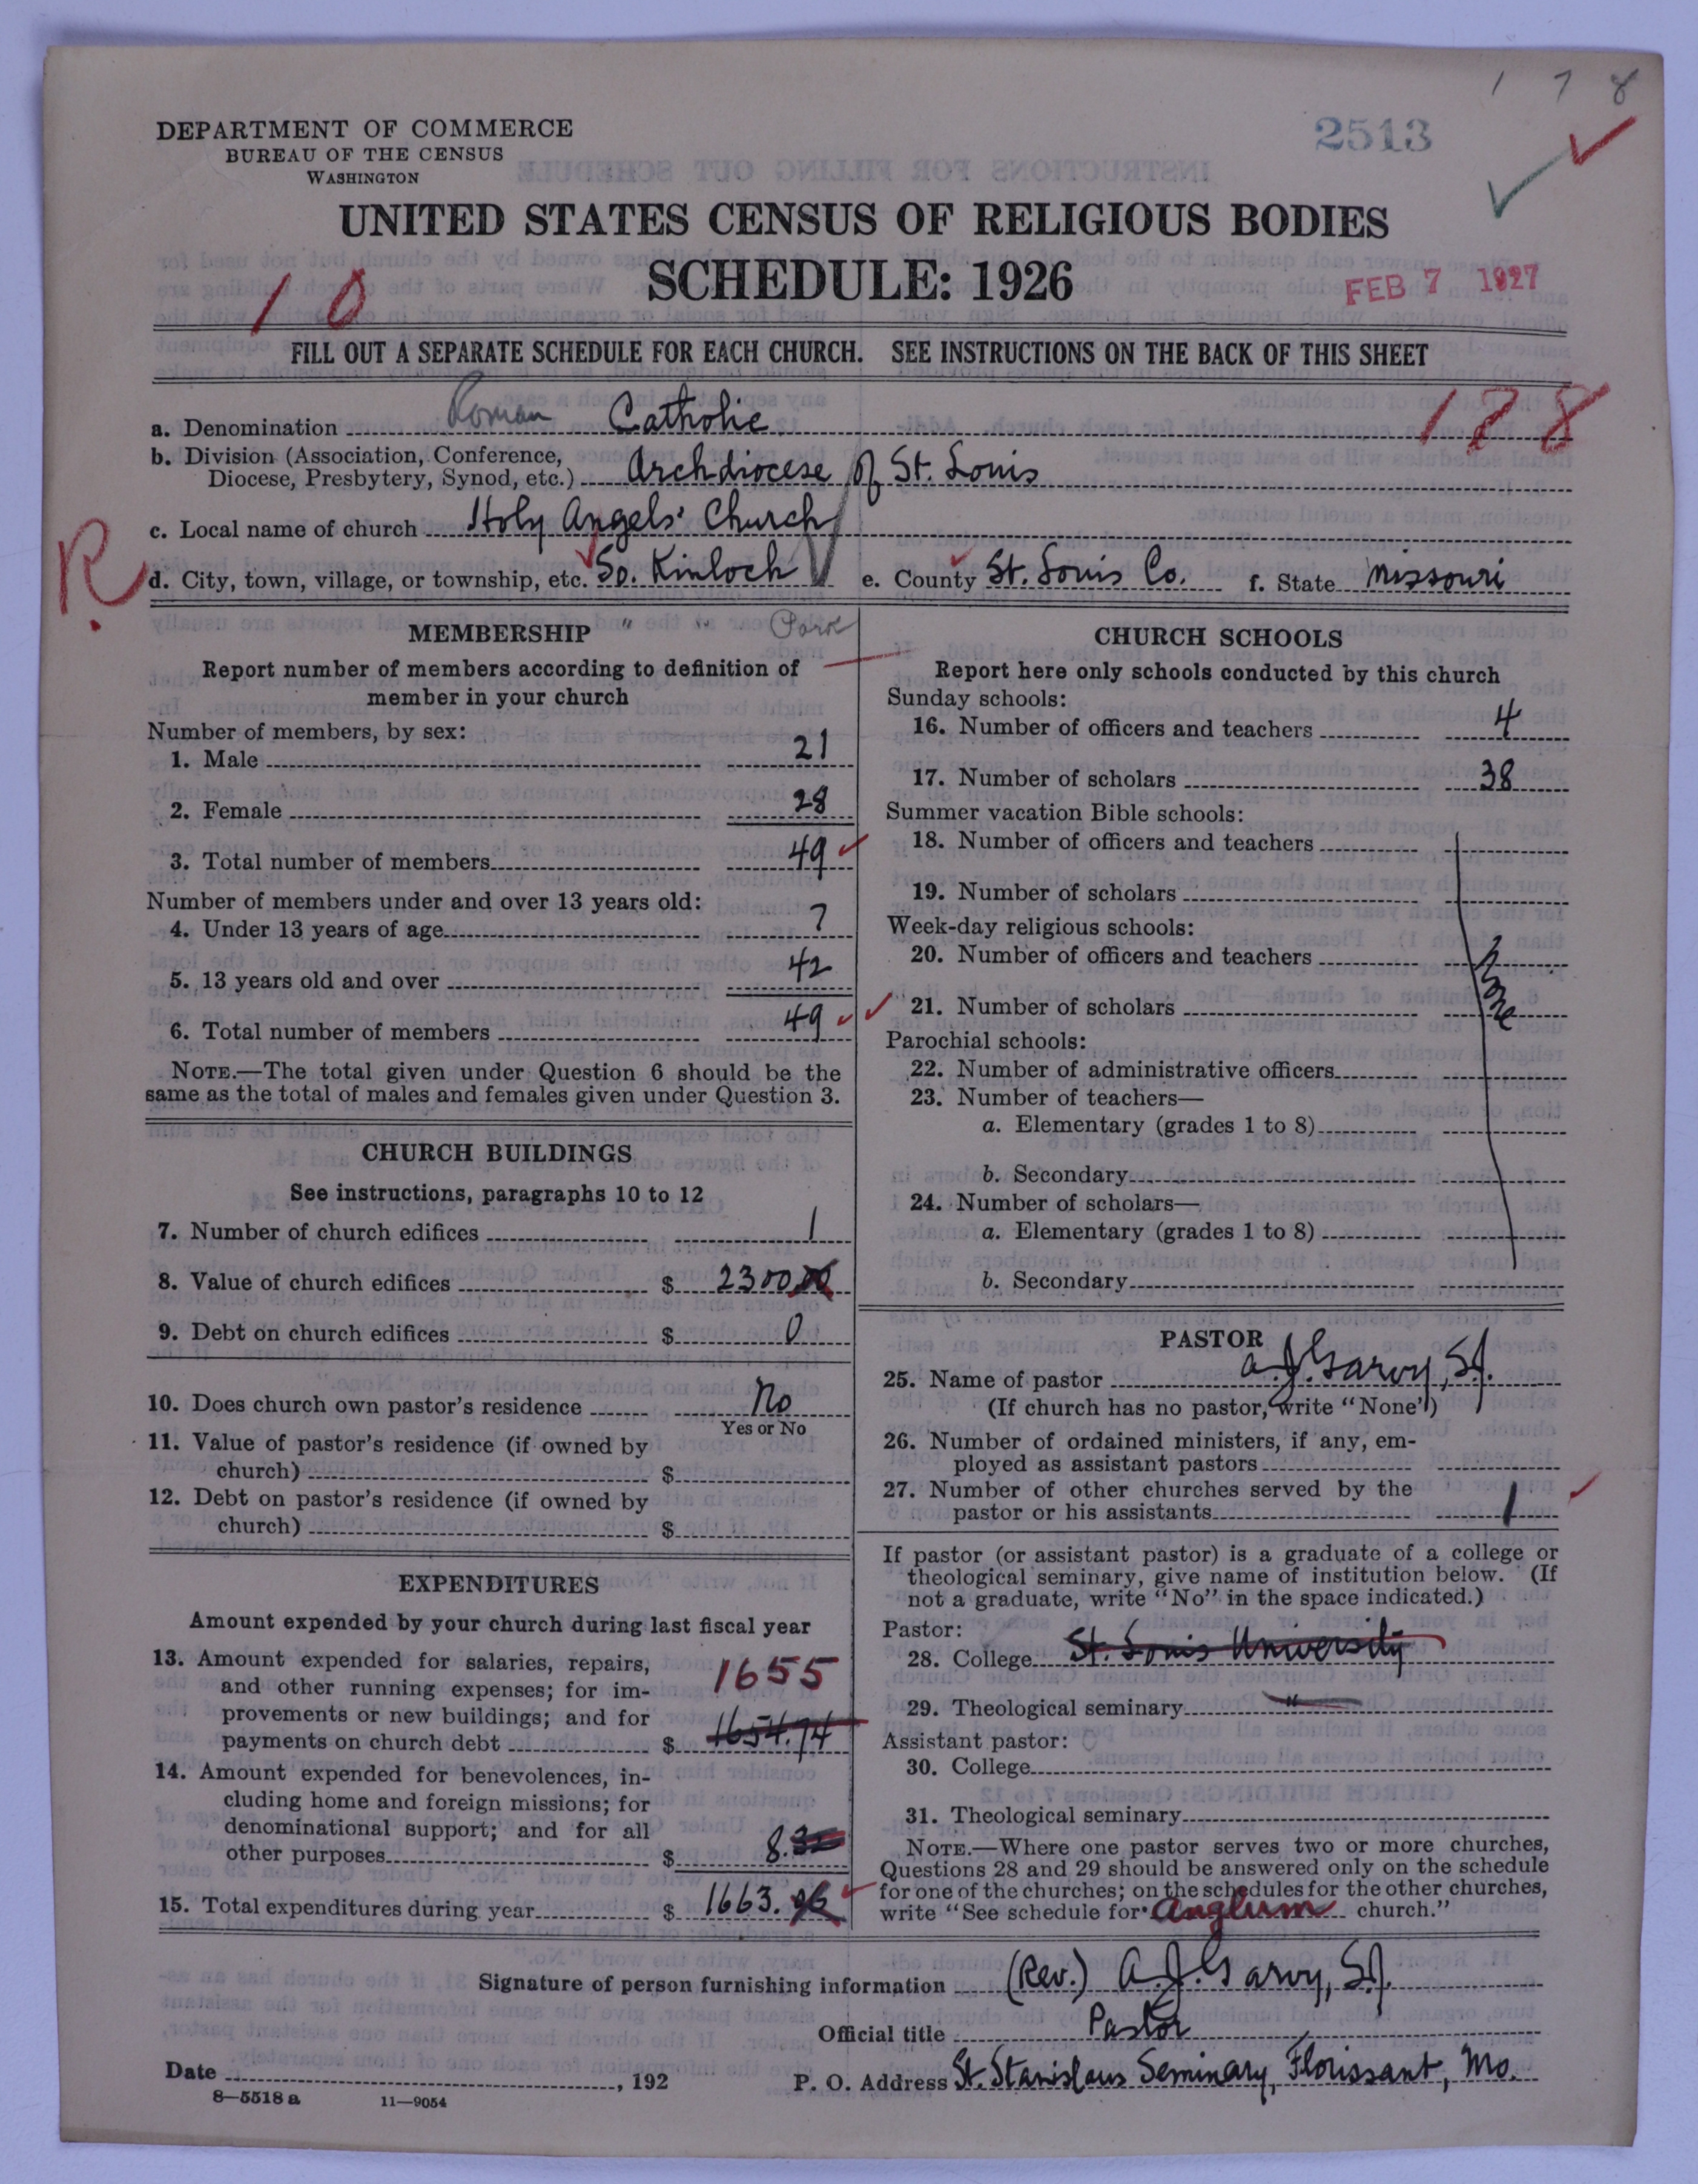 1 7 8
DEPARTMENT OF COMMERCE
BUREAU OF THE CENSUS
WASHINGTON
2513
UNITED STATES CENSUS OF RELIGIOUS BODIES
SCHEDULE: 1926
10
FEB 7 1927
FILL OUT A SEPARATE SCHEDULE FOR EACH CHURCH. SEE INSTRUCTIONS ON THE BACK OF THIS SHEET
178
a. Denomination Roman Catholic
b. Division (Association, Conference, Diocese, Presbytery, Synod, etc.) Archdiocese of St. Louis
c. Local name of church Holy Angels' Church
R.
d. City, town, village, or township, etc. So. Kinloch e. County St. Louis Co. f. State Missouri
" " Park
MEMBERSHIP
Report number of members according to definition of
member in your church
Number of members, by sex:
1. Male 21
2. Female 28
3. Total number of members 49
Number of members under and over 13 years old:
4. Under 13 years of age 7
5. 13 years old and over 42
6. Total number of members 49
NOTE.—The total given under Question 6 should be the
same as the total of males and females given under Question 3.
CHURCH BUILDINGS
See instructions, paragraphs 10 to 12
7. Number of church edifices 1
8. Value of church edifices $ 2300.00
9. Debt on church edifices $ 0
10. Does church own pastor's residence No
Yes or No
11. Value of pastor's residence (if owned by
church) $
12. Debt on pastor's residence (if owned by
church) $
EXPENDITURES
Amount expended by your church during last fiscal year
13. Amount expended for salaries, repairs,
and other running expenses; for im-
provements or new buildings; and for
payments on church debt $ 1654.74
1655
14. Amount expended for benevolences, in-
cluding home and foreign missions; for
denominational support; and for all
other purposes $ 8.
15. Total expenditures during year $ 1663.
CHURCH SCHOOLS
Report here only schools conducted by this church
Sunday schools:
16. Number of officers and teachers 4
17. Number of scholars 38
Summer vacation Bible schools:
18. Number of officers and teachers
19. Number of scholars
Week-day religious schools:
20. Number of officers and teachers
None
21. Number of scholars
Parochial schools:
22. Number of administrative officers
23. Number of teachers—
a. Elementary (grades 1 to 8)
b. Secondary
24. Number of scholars—
a. Elementary (grades 1 to 8)
b. Secondary
PASTOR
25. Name of pastor A. J. Garvy, S.J.
(If church has no pastor, write "None")
26. Number of ordained ministers, if any, em-
ployed as assistant pastors
27. Number of other churches served by the
pastor or his assistants 1
If pastor (or assistant pastor) is a graduate of a college or
theological seminary, give name of institution below. (If
not a graduate, write "No" in the space indicated.)
Pastor:
28. College St. Louis University
29. Theological seminary "
Assistant pastor:
30. College
31. Theological seminary
NOTE.—Where one pastor serves two or more churches,
Questions 28 and 29 should be answered only on the schedule
for one of the churches; on the schedules for the other churches,
write "See schedule for Anglum church."
Signature of person furnishing information (Rev.) A. J. Garvy, S.J.
Official title Pastor
Date , 192
P. O. Address St. Stanislaus Seminary, Florissant, Mo.
8—5518 a 11—9054